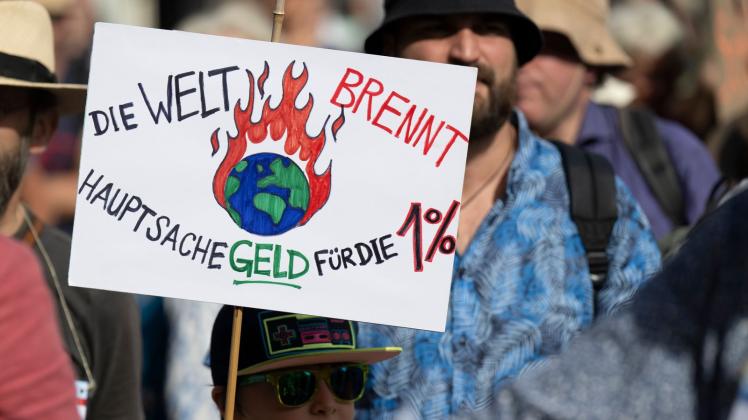 DIE WELT BRENNT
HAUPTSACHE GELD FÜR DIE 1%